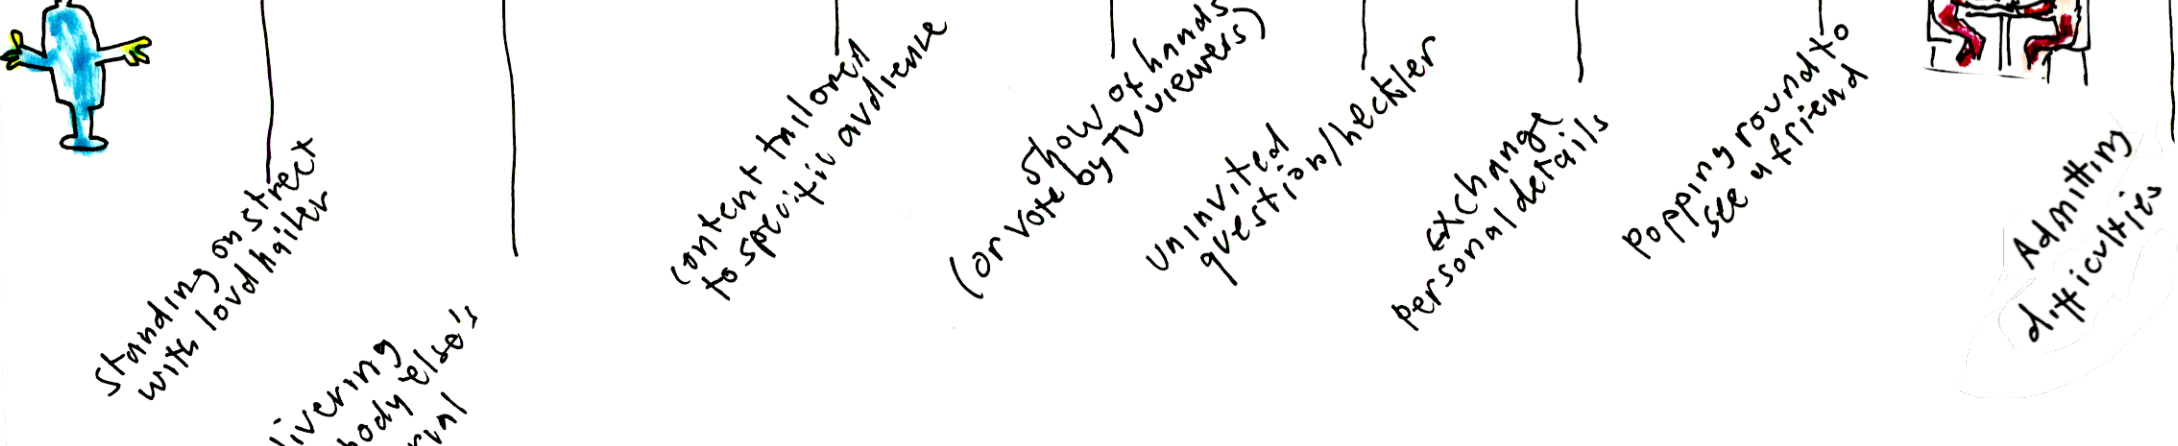 Standing on street
with loudhailer
livering
body else's
Content tailored
to specific audience
Show of hands
(or vote by TV viewers)
Uninvited
question/heckler
Exchange
personal details
Popping round to
see a friend
Admitting
difficulties